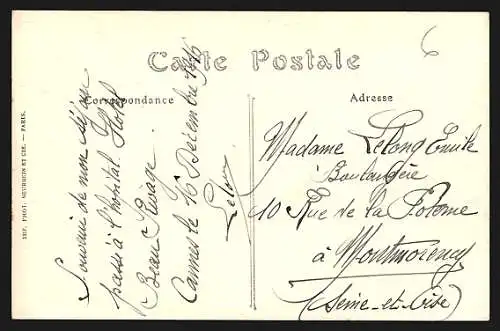 Carte Postale
Correspondance
Adresse
Souvenir de mon séjour
passé à l'hôpital Hotel
Beau Rivage
Cannes le 16 Décembre 1916
Lelong
Madame Lelong Emile
Boulangère
10 Rue de la Poterne
à Montmorency
(Seine-et-Oise)
IMP. PHOT. NEURDEIN ET CIE. — PARIS.
6